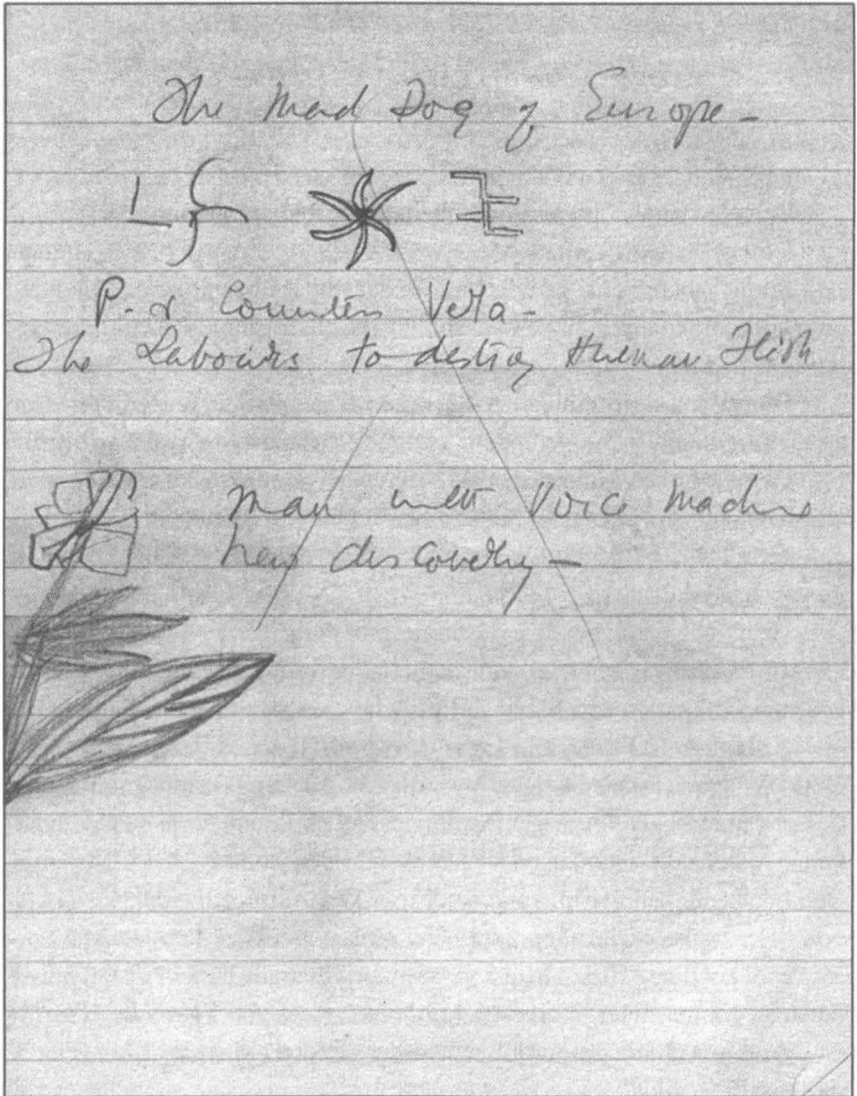 The Mad Dog of Europe -
P. & Countess Vera -
The Labours to destroy Human Flesh
Man with Voice Machine
new discovery -